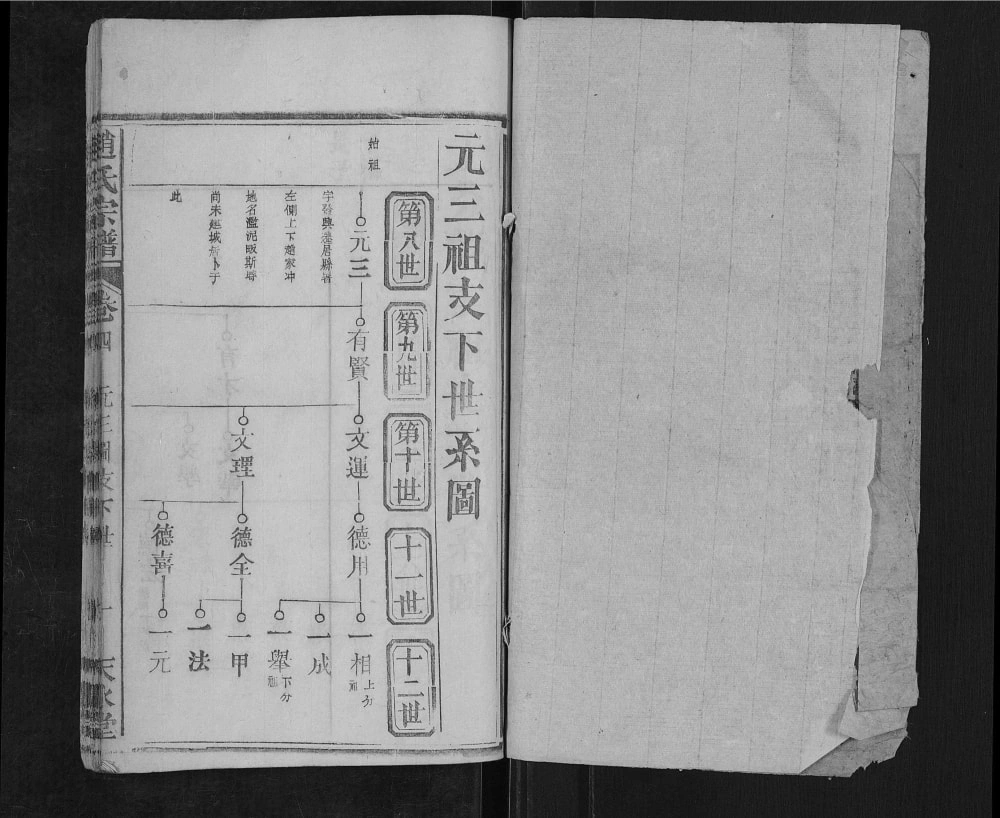 元三祖支下世系圖
第八世
第九世
第十世
十一世
十二世
始祖
元三
字發興遷居縣塔
左側上下趙家冲
地名濫泥畈斯塔
尚未建城
此
有賢
文運
文理
德用
德全
德喜
一相
上分祖
一成
一舉
下分祖
一甲
一法
一元
趙氏宗譜
卷四
元三祖支下世
一
天水堂